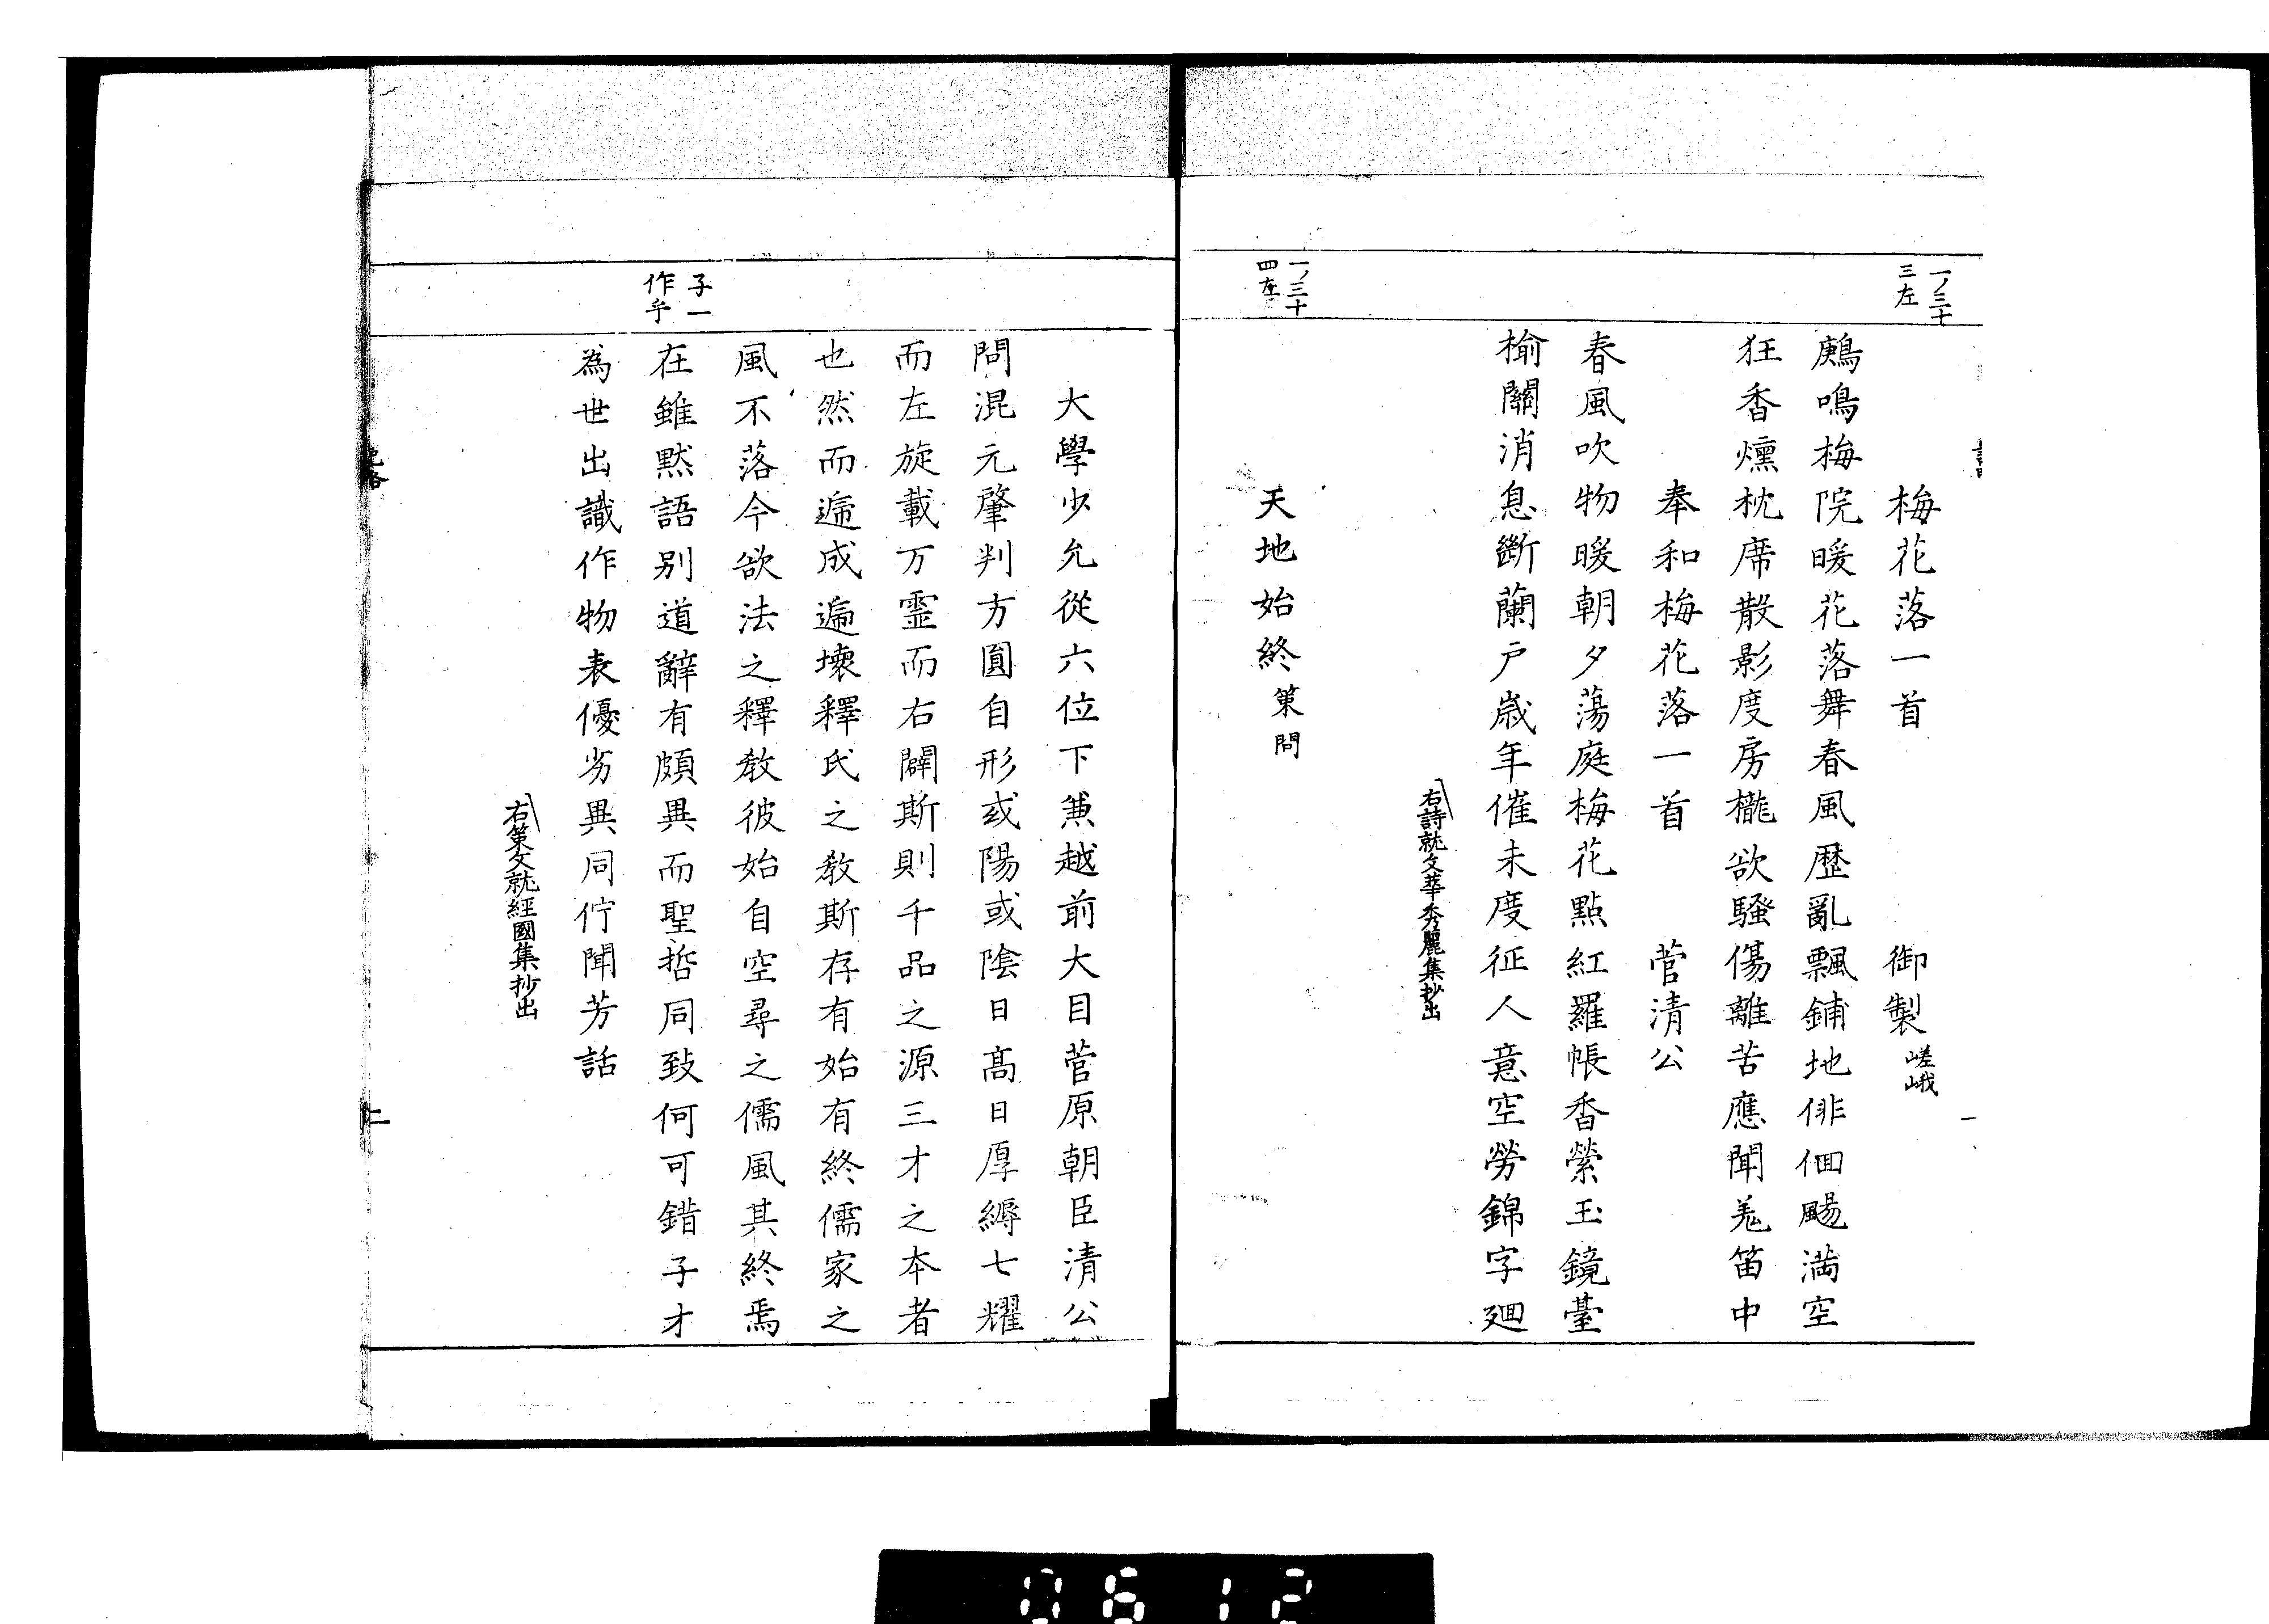 一ノ三十
三左
梅花落一首 御製 嵯峨
鶊鳴梅院暖花落舞春風歴亂飄鋪地俳佪颺満空
狂香燻枕席散影度房櫳欲騒傷離苦應聞羗笛中
奉和梅花落一首 菅清公
春風吹物暖朝夕蕩庭梅花點紅羅帳香縈玉鏡臺
榆關消息斷蘭戸歳年催未度征人意空勞錦字廻
右詩就文華秀麗集抄出
一ノ三十
四左
天地始終 策問
大學少允從六位下兼越前大目菅原朝臣清公
問混元肇判方圓自形或陽或陰日髙日厚縟七耀
而左旋載万霊而右闢斯則千品之源三才之本者
也然而遞成遍壊釋氏之教斯存有始有終儒家之
風不落今欲法之釋教彼始自空尋之儒風其終焉
子一
作乎
在雖黙語别道辭有頗異而聖哲同致何可錯子才
為世出識作物表優劣異同佇聞芳話
右策文就經國集抄出
二
0612